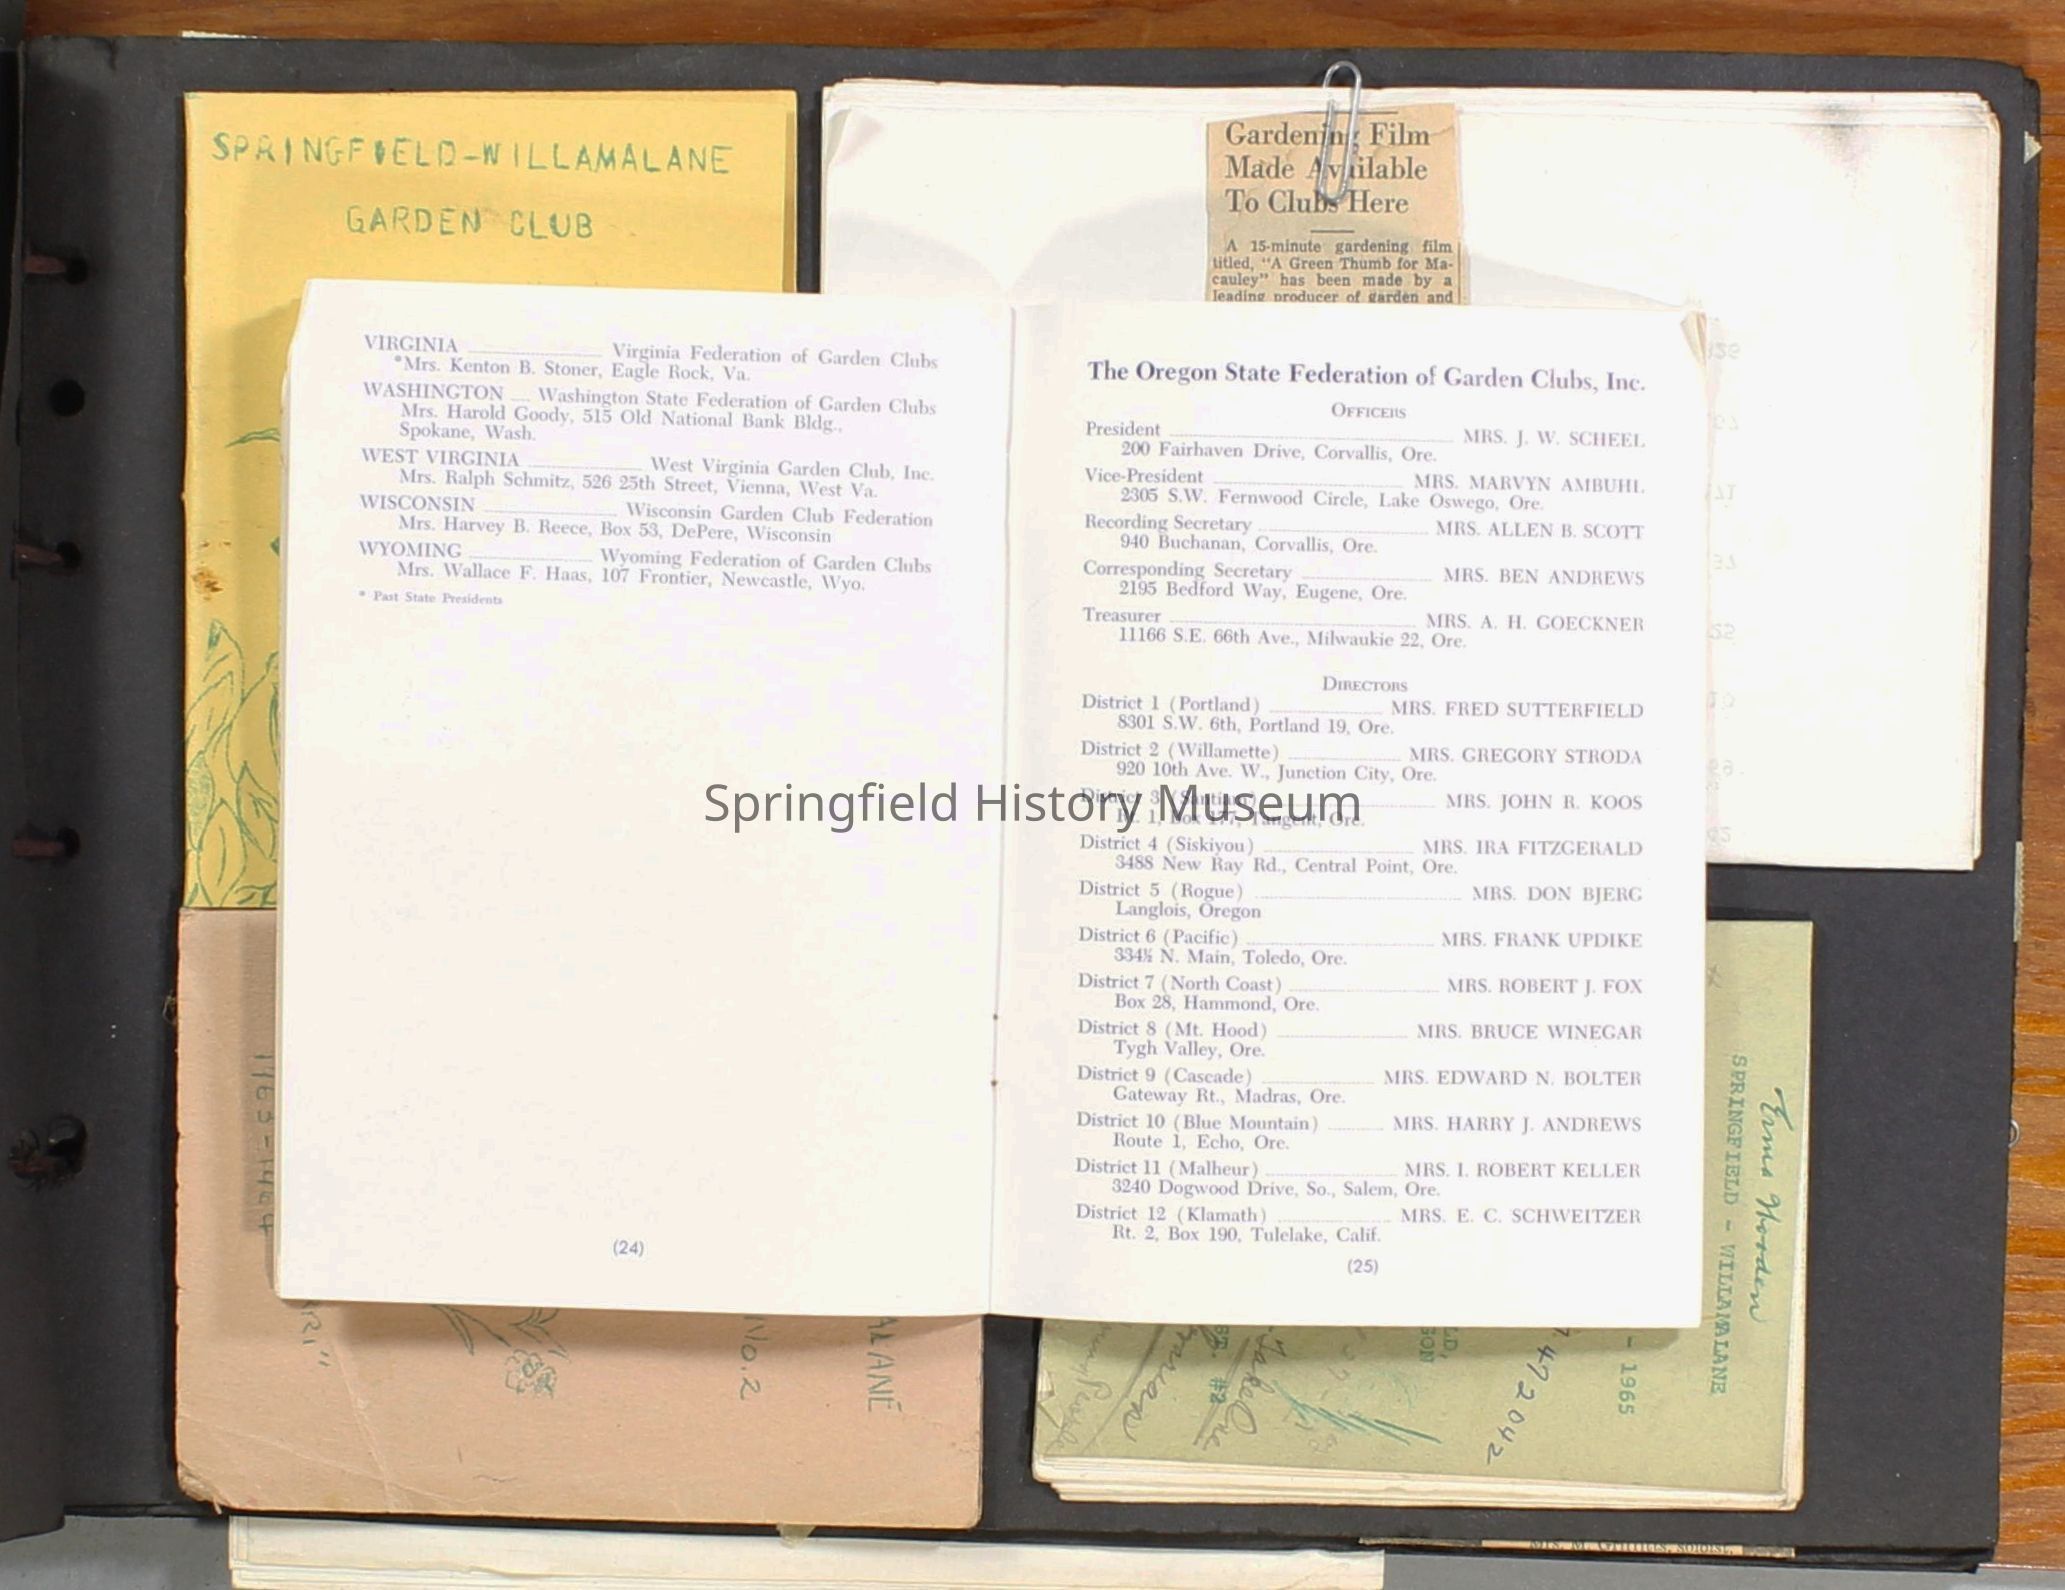 SPRINGFIELD-WILLAMALANE
GARDEN CLUB
Gardening Film
Made Available
To Clubs Here
A 15-minute gardening film
titled, "A Green Thumb for Ma-
cauley" has been made by a
leading producer of garden and
VIRGINIA Virginia Federation of Garden Clubs
*Mrs. Kenton B. Stoner, Eagle Rock, Va.
WASHINGTON Washington State Federation of Garden Clubs
Mrs. Harold Goody, 515 Old National Bank Bldg.,
Spokane, Wash.
WEST VIRGINIA West Virginia Garden Club, Inc.
Mrs. Ralph Schmitz, 526 25th Street, Vienna, West Va.
WISCONSIN Wisconsin Garden Club Federation
Mrs. Harvey B. Reece, Box 53, DePere, Wisconsin
WYOMING Wyoming Federation of Garden Clubs
Mrs. Wallace F. Haas, 107 Frontier, Newcastle, Wyo.
* Past State Presidents
(24)
The Oregon State Federation of Garden Clubs, Inc.
OFFICERS
President MRS. J. W. SCHEEL
200 Fairhaven Drive, Corvallis, Ore.
Vice-President MRS. MARVYN AMBUHL
2305 S.W. Fernwood Circle, Lake Oswego, Ore.
Recording Secretary MRS. ALLEN B. SCOTT
940 Buchanan, Corvallis, Ore.
Corresponding Secretary MRS. BEN ANDREWS
2195 Bedford Way, Eugene, Ore.
Treasurer MRS. A. H. GOECKNER
11166 S.E. 66th Ave., Milwaukie 22, Ore.
DIRECTORS
District 1 (Portland) MRS. FRED SUTTERFIELD
8301 S.W. 6th, Portland 19, Ore.
District 2 (Willamette) MRS. GREGORY STRODA
920 10th Ave. W., Junction City, Ore.
District 3 (Santiam) MRS. JOHN R. KOOS
Rt. 1, Box 177, Tangent, Ore.
District 4 (Siskiyou) MRS. IRA FITZGERALD
3488 New Ray Rd., Central Point, Ore.
District 5 (Rogue) MRS. DON BJERG
Langlois, Oregon
District 6 (Pacific) MRS. FRANK UPDIKE
334½ N. Main, Toledo, Ore.
District 7 (North Coast) MRS. ROBERT J. FOX
Box 28, Hammond, Ore.
District 8 (Mt. Hood) MRS. BRUCE WINEGAR
Tygh Valley, Ore.
District 9 (Cascade) MRS. EDWARD N. BOLTER
Gateway Rt., Madras, Ore.
District 10 (Blue Mountain) MRS. HARRY J. ANDREWS
Route 1, Echo, Ore.
District 11 (Malheur) MRS. I. ROBERT KELLER
3240 Dogwood Drive, So., Salem, Ore.
District 12 (Klamath) MRS. E. C. SCHWEITZER
Rt. 2, Box 190, Tulelake, Calif.
(25)
Springfield History Museum
1963-1964
NO.2
SPRINGFIELD - WILLAMALANE
- 1965
#2
Mrs. M. Griffitts, soloist,